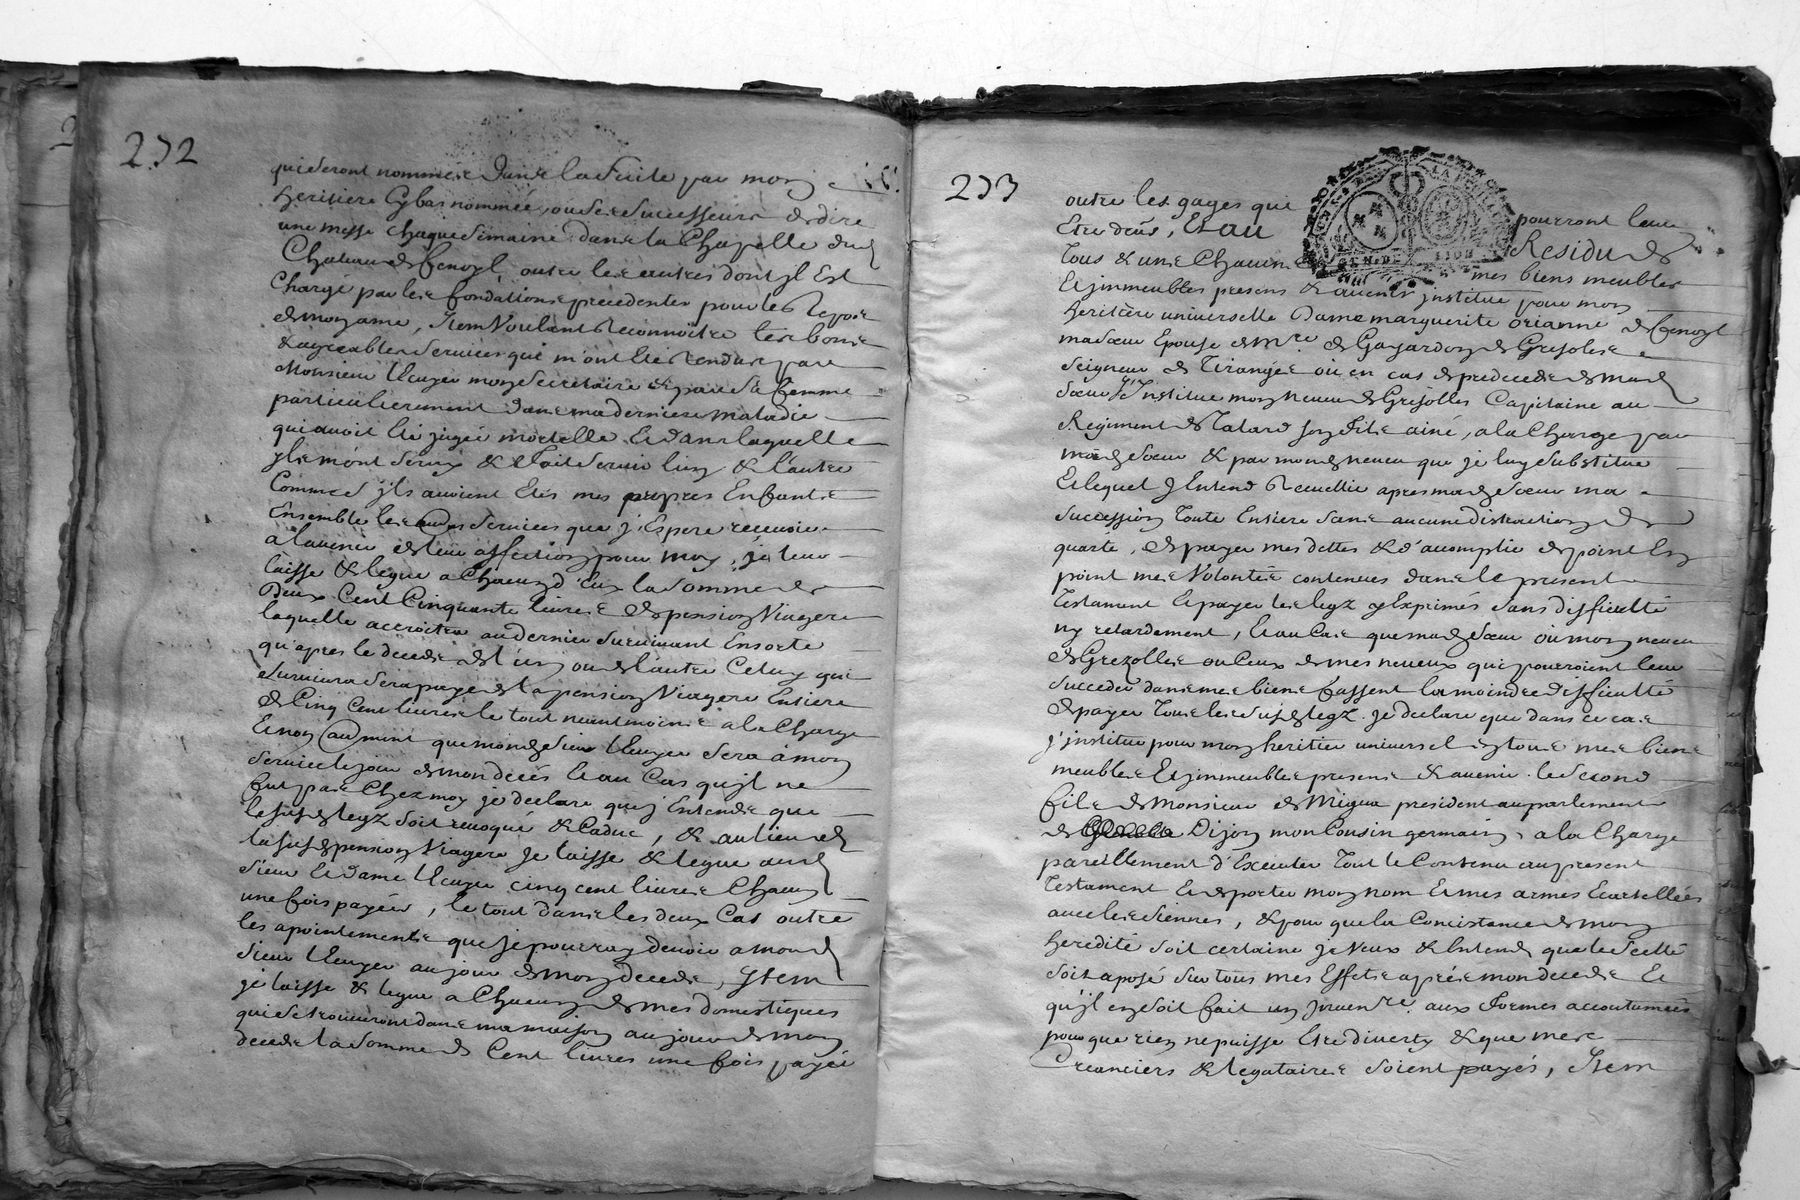 232
qui seront nommés dans la suite par mon
heritiere cy bas nommée, ou ses successeurs de dire
une messe chaque semaine dans la Chapelle dud
Chateau de fenoyl, outre les autres dont jl Est
Chargé par les fondations precedentes pour le Repos
de mon ame, Jtem Voulant Reconnoitre les bons
& agreables services que m'ont Etés Rendus par
Monsieur Uleuyer mon secretaire & par sa femme
particulierement dans ma derniere maladie
qui avoit Eté jugée mortelle Et dans laquelle
jls m'ont servy & fait servir l'un & l'autre
Comme s'jls avoient Etés mes propres Enfants
Ensemble les services que j'Espere recevoir
a l'avenir de leur affection pour moy, je leur
laisse & legue a Chacun d'Eux la somme de
Deux Cent Cinquante livres de pension Viagere
laquelle accroitra au dernier survivant En sorte
qu'apres le decede de l'un ou de l'autre Celuy qui
survivra sera payé de la pension Viagere Entiere
de Cinq Cent livres le tout neantmoins a la Charge
Et non autrement que mond sieur Uleuyer sera à mon
service le jour de mon decés Et au Cas qu'jl ne
fut pas Chez moy je declare que j'Entends que
le susd legz soit revoqué & Caduc, & au lieu de
la susd pension Viagere Je laisse & legue aud
sieur Et Dame Uleuyer cinq cent livres Chacun
une fois payées, le tout dans les deux Cas outre
les apointements que je pourray devoir a mond
sieur Uleuyer au jour de mon decede, Jtem
je laisse & legue a Chacun de mes domestiques
qui se trouveront dans ma maison au jour de mon
decede la somme de Cent livres une fois payée
233
outre les gages qui pourront leur
Etre deüs, Et au Residu de
tous & uns Chacuns mes biens meubles
Et jmmeubles presens & avenir jnstitue pour mon
heritiere universelle Dame marguerite orianne de fenoyl
ma sœur Epouse de Mre. de Gayardon de Gresolles
seigneur de Tirangés ou en cas de predecede de mad
sœur j'jnstitue mon neveu de Gresolles Capitaine au
Regiment de Talard son fils ainé, a la Charge par
mad sœur & par mond neveu que je luy substitue
Et lequel j'Entend Recueillir apres mad sœur ma
succession toute Entiere sans aucune distraction de
quarte, de payer mes dettes & d'acomplir de point En
point mes Volontés contenues dans le present
testament Et payer les legz y Exprimés sans difficulté
ny retardement, Et au Cas que mad sœur ou mon neveu
de Grezolles ou Ceux de mes neveux qui pourroient leur
succeder dans mes biens fassent la moindre difficulté
de payer tous les susd legz. Je declare que dans ce cas
j'institue pour mon heritier universel En tous mes biens
meubles Et jmmeubles presens & avenir le second
fils de Monsieur de Migieu president au parlement
de Dijon mon Cousin germain, a la Charge
pareillement d'Executer tout le Contenu au present
testament Et de porter mon nom Et mes armes Ecartellées
avec les siennes, & pour que la Concistance de mon
heredité soit certaine je Veux & Entend que le scellé
soit aposé sur tous mes Effets aprés mon decede Et
qu'jl en soit fait un jnvenre. aux formes accoutumées
pour que rien ne puisse Etre diverty & que mes
Creanciers & legataires soient payés, Jtem